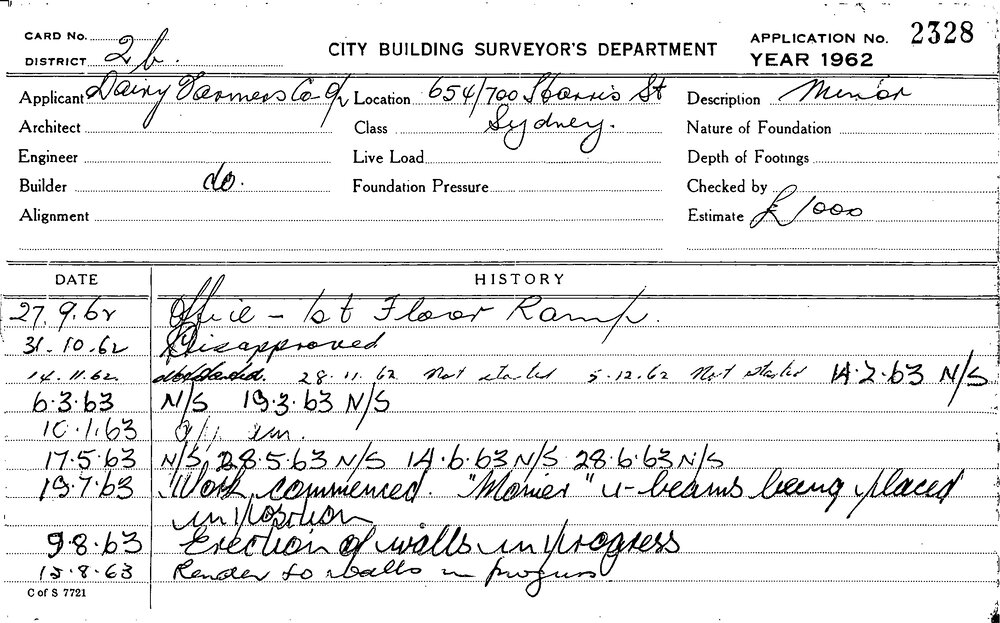 CARD No.
DISTRICT 2b.
CITY BUILDING SURVEYOR'S DEPARTMENT
APPLICATION No. 2328
YEAR 1962
Applicant Dairy Farmers Co-
Location 654/700 Harris St
Sydney.
Description Minor
Architect
Class
Nature of Foundation
Engineer
Live Load
Depth of Footings
Builder do.
Foundation Pressure
Checked by
Alignment
Estimate £1000
DATE HISTORY
27.9.62 Office - 1st Floor Ramp.
31.10.62 Disapproved
14.11.62. Not started. 28.11.62 Not started 5.12.62 Not started 14.2.63 N/S
6.3.63 N/S 19.3.63 N/S
10.1.63
17.5.63 N/S 28.5.63 N/S 14.6.63 N/S 28.6.63 N/S
19.7.63 Work commenced. "Monier" u-beams being placed
in position
9.8.63 Erection of walls in progress
15.8.63 Render to walls in progress
C of S 7721